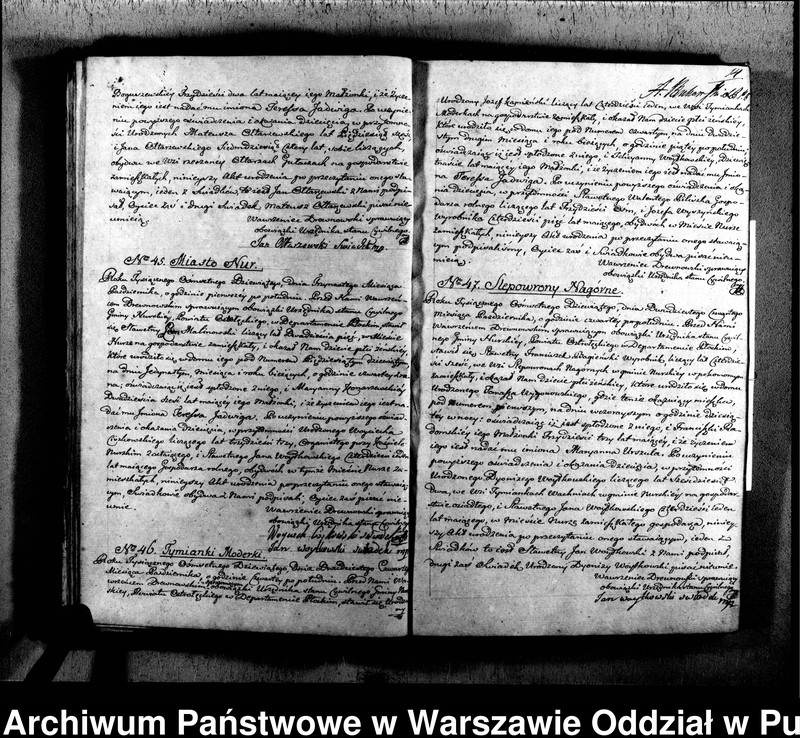 Boguszewskiey Trzydzieści dwa lat maiącey iego Małżonki, i że życze-
niem iego iest nadać mu imiona Teressa Jadwiga. Po uczynie-
niu powyższego oświadczenia i okazania Dziecięcia, w przytomno-
ści Urodzonych Mateusza Ołtarzewskiego lat Pięćdziesiąt sześć,
i Jana Ołtarzewskiego Siedmdziesiąt Cztery lat, sobie liczących,
obydwu we Wsi rzeczoney Ołtarzach Gołaczach na gospodarstwie
zamieszkałych, ninieyszy Akt urodzenia po przeczytaniu onego sta-
waiącym, ieden z Świadków, to iest Jan Ołtarzewski z Nami podpi-
sał, Oyciec zaś i drugi Świadek Mateusz Ołtarzewski pisać nie
umieią.
Wawrzeniec Drewnowski sprawuiący
obowiązki Urzędnika stanu Cywilnego
Jan Ołtarzewski Świadek mp
No 45. Miasto Nur.
Roku Tysiącznego Ośmsetnego Dziewiątego, dnia Trzynastego Miesiąca
Października, o godzinie pierwszey po południu. Przed Nami Wawrzeń-
cem Drewnowskim sprawuiącym obowiązki Urzędnika stanu Cywilnego
Gminy Nurskiey, Powiatu Ostrołęckiego, w Departamencie Płockim, stawił
się Sławetny Malinowski liczący lat Dwadzieścia pięć, w Mieście
Nurze na gospodarstwie zamieszkały, i okazał Nam dziecie płci żeńskiey,
które urodziło się w domu iego pod Numerem Pięćdziesiątym dziewiątym,
na dniu Jedynastym, miesiąca i roku bieżących, o godzinie czwartey z ra-
na; oświadczaiąc iż iest spłodzone z niego, i Maryanny
Dwadzieścia sześć lat maiącey iego Małżonki, i że życzeniem iego iest na-
dać mu Imiona Teressa Jadwiga. Po uczynieniu powyższego oświad-
czenia i okazaniu Dziecięcia, w przytomności Urodzonego Woyciecha
Czyżewskiego liczącego lat trzydzieści trzy, Organistego przy kościele
Nurskim zostaiącego, i Sławetnego Jana Woytkowskiego Czterdzieści ieden
lat maiącego Gospodarza rolnego, obydwóch w tymże Mieście Nurze za-
mieszkałych, ninieyszy Akt urodzenia po przeczytaniu onego stawaią-
cym, Świadkowie obydwa z Nami podpisali, Oyciec zaś pisać nie-
umie.
Wawrzeniec Drewnowski sprawuiący
obowiązki Urzędnika stanu Cywilnego
Jan woytkowski swiadek mp
No 46. Tymianki Moderki.
Roku Tysiącznego Ośmsetnego Dziewiątego, Dnia Dwudziestego Czwartego
Miesiąca Października, o godzinie czwartey po południu. Przed Nami Wa-
wrzeńcem Drewnowskim sprawuiącym obowiązki Urzędnika stanu Cywilnego Gminy Nur-
skiey, Powiatu Ostrołęckiego w Departamencie Płockim, stawił się Urodzo-
ny
Urodzony Jozef Kamieński liczący lat Czterdzieści ieden, we wsi Tymiankach
Moderkach na gospodarstwie zamieszkały, i okazał Nam dziecie płci żeńskiey,
które urodziło się w domu iego pod Numerem Czwartym, na dniu Dwudzie-
stym drugim Miesiąca i roku bieżących, o godzinie piątey po południu;
oświadczaiąc iż iest spłodzone z niego, i Julyanny Woytkowskiey, Dziewię-
tnaście lat maiącey iego Małżonki, i że życzeniem iego iest nadać mu Imio-
na Teressa Jadwiga. Po uczynieniu powyższego oświadczenia i okaza-
nia Dziecięcia, w przytomności, Sławetnego Walentego Gospo-
darza rolnego liczącego lat Trzydzieści Ośm, i Jozefa Wyszyńskiego
wyrobnika Czterdzieści pięć lat maiącego, obydwóch w Mieście Nurze
zamieszkałych, ninieyszy Akt urodzenia po przeczytaniu onego stawaią-
cym podpisaliśmy, Oyciec zaś i Świadkowie obydwa pisać nieu-
mieią.
Wawrzeniec Drewnowski sprawuiący
obowiązki Urzędnika stanu Cywilnego
No 47. Slepowrony Nagórne.
Roku Tysiącznego Ośmsetnego Dziewiątego, dnia Dwudziestego Czwartego
miesiąca Października, o godzinie czwartey po południu. Przed Nami
Wawrzeńcem Drewnowskim sprawuiącym obowiązki Urzędnika stanu Cywil-
nego Gminy Nurskiey, Powiatu Ostrołęckiego w Departamencie Płockim,
stawił się, Sławetny Franciszek Wyrobnik, liczący lat Czterdzie-
ści sześć, we Wsi Slepowronach Nagórnych w gminie Nurskiey
zamieszkały, i okazał Nam dziecie płci żeńskiey, które urodziło się w Domu
Urodzonego Wyszkowskiego, gdzie tenże okazuiący mieszka,
pod Numerem pierwszym, na dniu wczorayszym o godzinie dziesią-
tey w nocy; oświadczaiąc iż iest spłodzone z niego, i Franciszki
iego Małżonki Trzydzieści trzy lat maiącey, i że życzeniem
iego iest nadać mu imiona Maryanna Urszula. Po uczynieniu
powyższego oświadczenia i okazania Dziecięcia, w przytomności
Urodzonego Dyonizego Woytkowskiego liczącego lat
dwa, we Wsi Tymiankach Wachniach w gminie Nurskiey na gospodar-
stwie osiadłego, i Sławetnego Jana Woytkowskiego Czterdzieści ieden
lat maiącego, w mieście Nurze zamieszkałego gospodarza, niniey-
szy Akt urodzenia po przeczytaniu onego stawaiącym, ieden z
Świadków to iest Sławetny Jan Woytkowski z Nami podpisał,
drugi zaś Świadek Urodzony Dyonizy Woytkowski pisać nieumie.
Wawrzeniec Drewnowski sprawuiący
obowiązki Urzędnika stanu Cywilnego
Jan woytkowski swiadek mp
Archiwum Państwowe w Warszawie Oddział w Pu